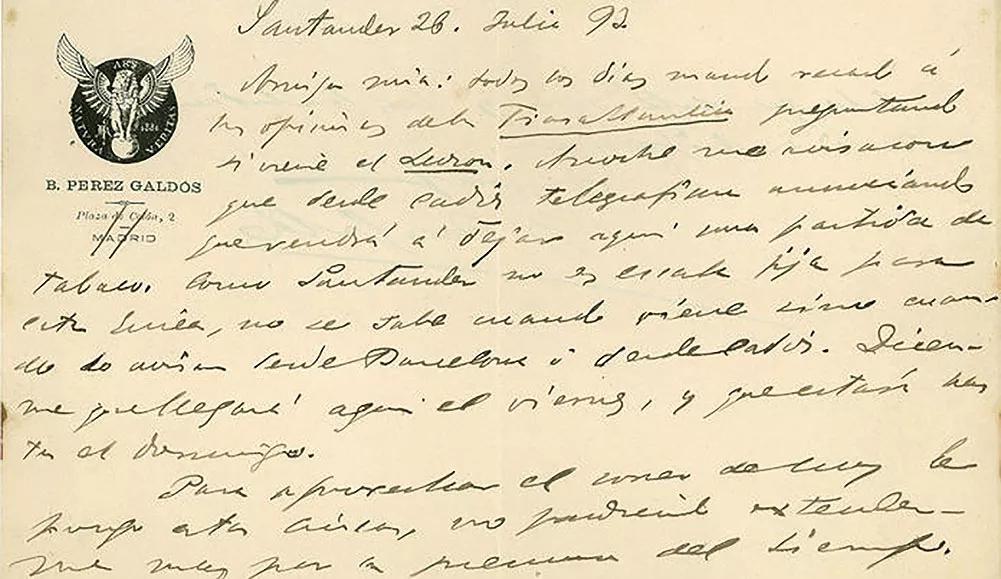 Santander 26. Julio 93.
ARS
NATVRA VERITAS
Amiga mia: todos los dias mando recado á
las oficinas de la Trasatlántica preguntando
si viene el Luzon. Anoche me avisaron
que desde Cadiz telegrafian anunciando
que vendrá á dejar aqui una partida de
B. PEREZ GALDÓS
Plaza de Colón, 2
MADRID
tabaco. Como Santander no es escala fija para
esta linea, no se sabe cuando viene sino cuan-
do lo avisan desde Barcelona ó desde Cadiz. Dicen-
me que llegará aqui el viernes, y que estará has
ta el domingo.
Para aprovechar el correo de hoy le
pongo estas lineas, no pudiendo extender-
me mas por la premura del tiempo.